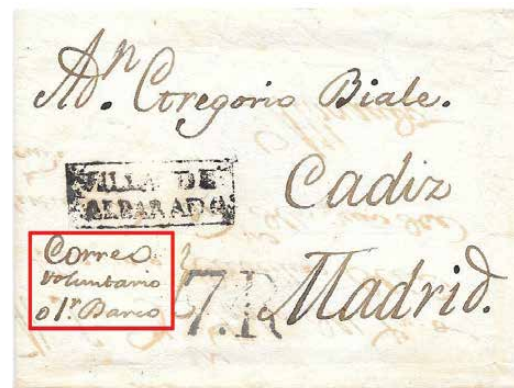 A Dn. Gregorio Biale.
Cadiz
VILLA DE
ALBARADO
Correo
voluntario
o 1r. Barco
7.R
Madrid.